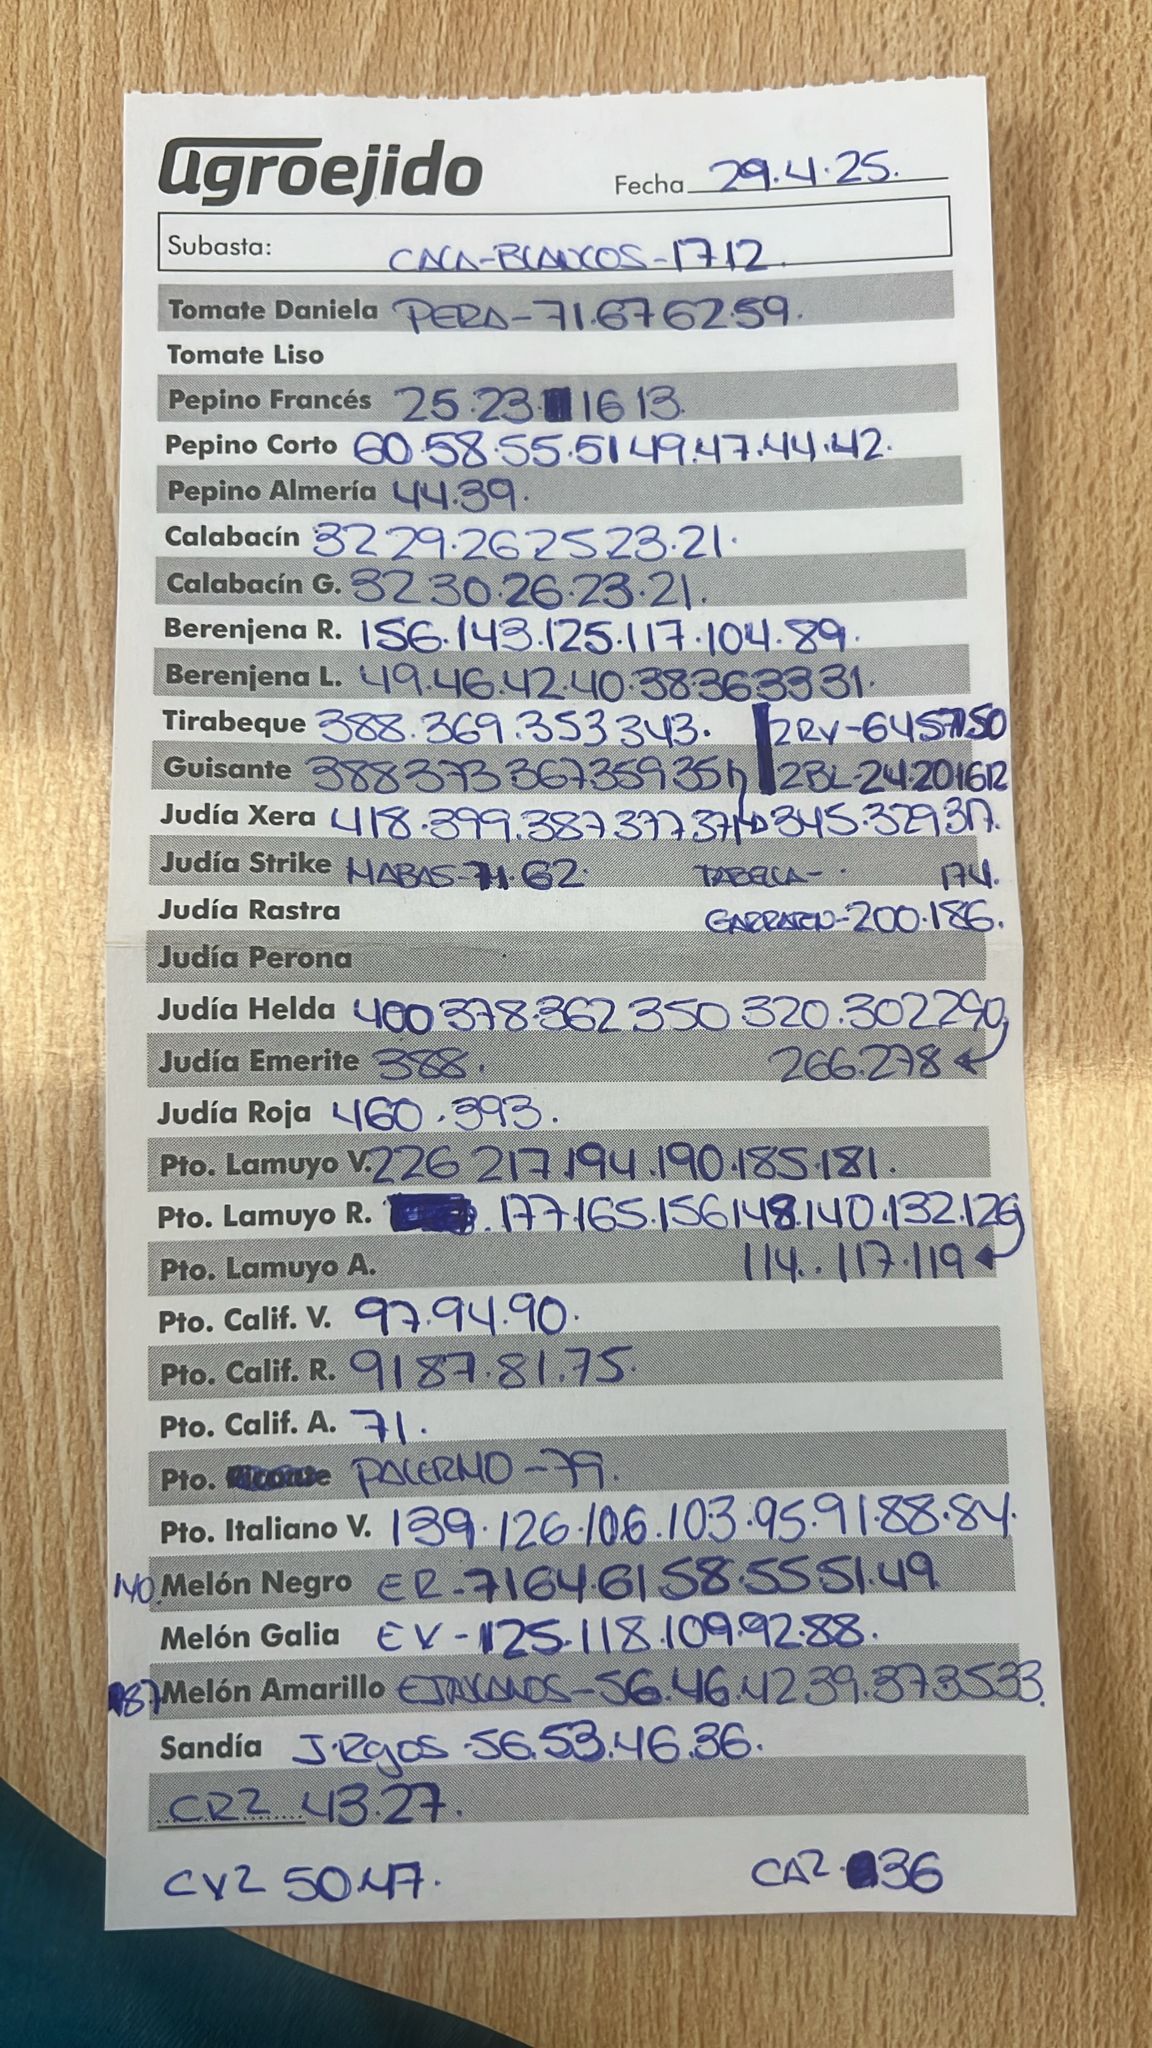 agroejido Fecha 29.4.25.
Subasta: CACA-BLANCOS-17 12.
Tomate Daniela PERA-71.67 62.59.
Tomate Liso
Pepino Francés 25.23 16 13.
Pepino Corto 60.58.55.51 49.47.44.42.
Pepino Almería 44.39.
Calabacín 32 29.26 25 23.21.
Calabacín G. 32 30.26.23.21.
Berenjena R. 156.143.125.117.104.89.
Berenjena L. 49.46.42.40.38 36 33 31.
Tirabeque 388.369.353 343. 2RV-64 57 50
Guisante 388 373 367 359 351 2BL-24.20 16 12
Judía Xera 418.399.387 377 371 345.329 317.
Judía Strike HABAS-71.62. TABELA-. 174.
Judía Rastra 200.186.
Judía Perona
Judía Helda 400 378.362 350 320.302 290
Judía Emerite 388. 266.278
Judía Roja 460.393.
Pto. Lamuyo V. 226 217 194.190.185.181.
Pto. Lamuyo R. .177.165.156 148.140.132.126
Pto. Lamuyo A. 114..117.119
Pto. Calif. V. 97.94.90.
Pto. Calif. R. 91 87.81.75.
Pto. Calif. A. 71.
Pto. PALERMO-79.
Pto. Italiano V. 139.126.106.103.95.91.88.84.
140. Melón Negro ER-71 64.61 58.55.51.49
Melón Galia EV-125.118.109.92.88.
87 Melón Amarillo -56.46.42 39.37 35 33.
Sandía J.Rgos-56.53.46.36.
CR2 43.27.
CV2 50.47. CA2. 36